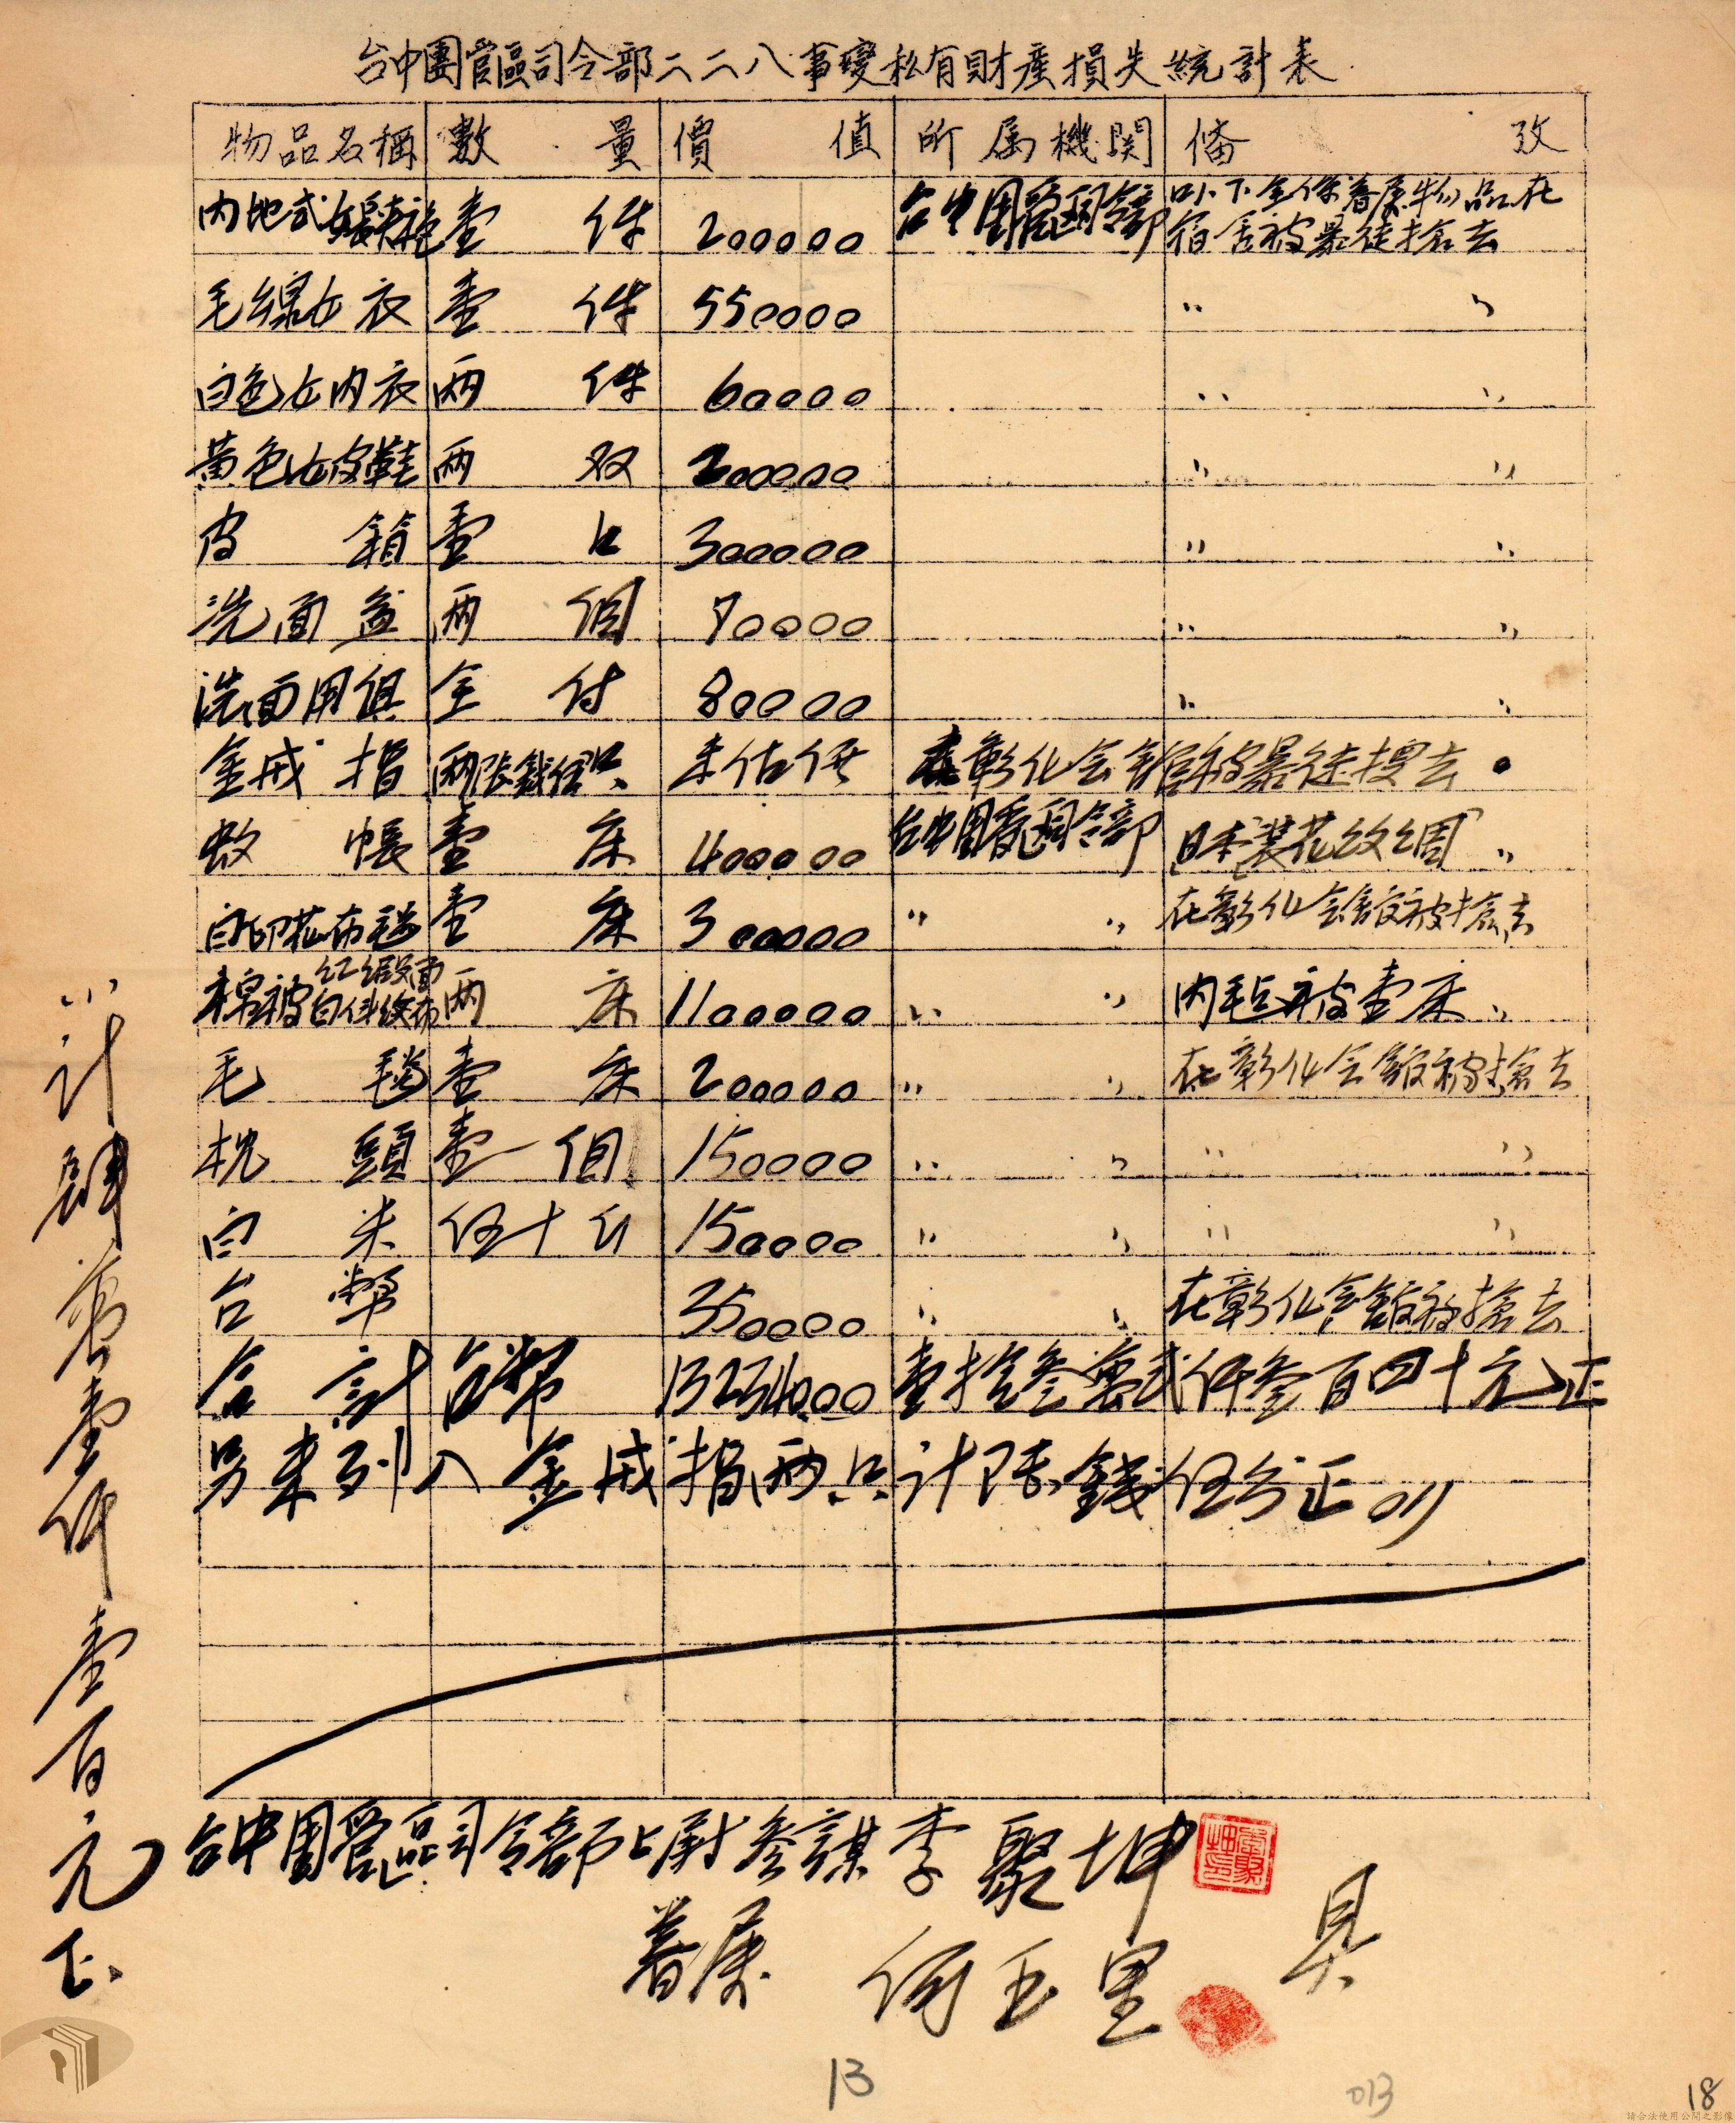 台中團管區司令部二二八事變私有財產損失統計表
物品名稱 數量 價值 所属機関 備攷
內地式女長旗袍 壹件 200000 台中團管區司令部 以下全係眷屬物品在宿舍被暴徒搶去
毛線女衣 壹件 550000 〃 〃
白色女內衣 兩件 60000 〃 〃
黃色女皮鞋 兩双 200000 〃 〃
皮箱 壹口 300000 〃 〃
洗面盆 兩個 70000 〃 〃
洗面用俱 全付 80000 〃 〃
金戒指 兩只 未估價 在彰化会館被暴徒搜去
蚊帳 壹床 400000 台中團管區司令部 日本裝花紋綢 〃
白印花布毯 壹床 300000 〃 〃 在彰化会館被搶去
棉被 紅緞面 白斜紋布 兩床 1100000 〃 〃 內毛毡被壹床 〃
毛毯 壹床 200000 〃 〃 在彰化会館被搶去
枕頭 壹個 150000 〃 〃 〃 〃
白米 伍十斤 150000 〃 〃 〃 〃
台幣 350000 〃 〃 在彰化会館被搶去
合計 台幣 13234000 壹拾叁萬弍仟叁百四十元正
另未列入金戒指兩只計錢伍分正
台中團管區司令部上尉參謀 李聚坤
眷屬 何玉里 具
計肆萬壹仟壹百元正
13
013
18
請合法使用公開之影像